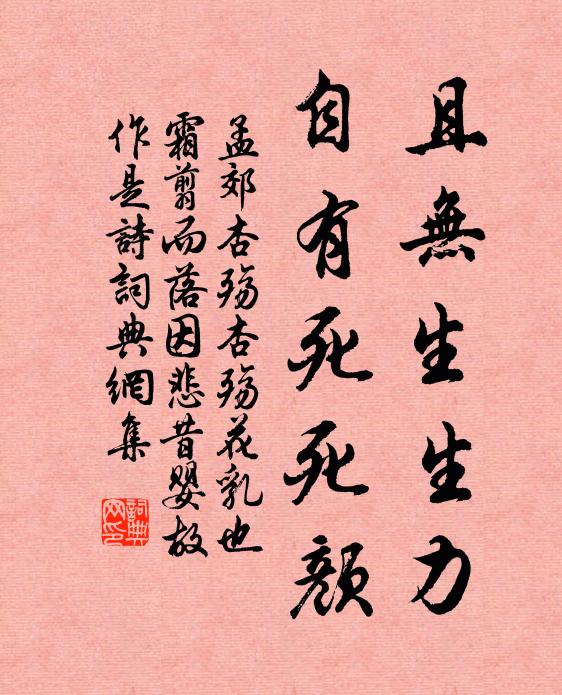 且無生生力
自有死死顏
孟郊杏殤杏殤花乳也
霜翦而落因悲昔嬰故
作是詩詞典網集
詞典
网印